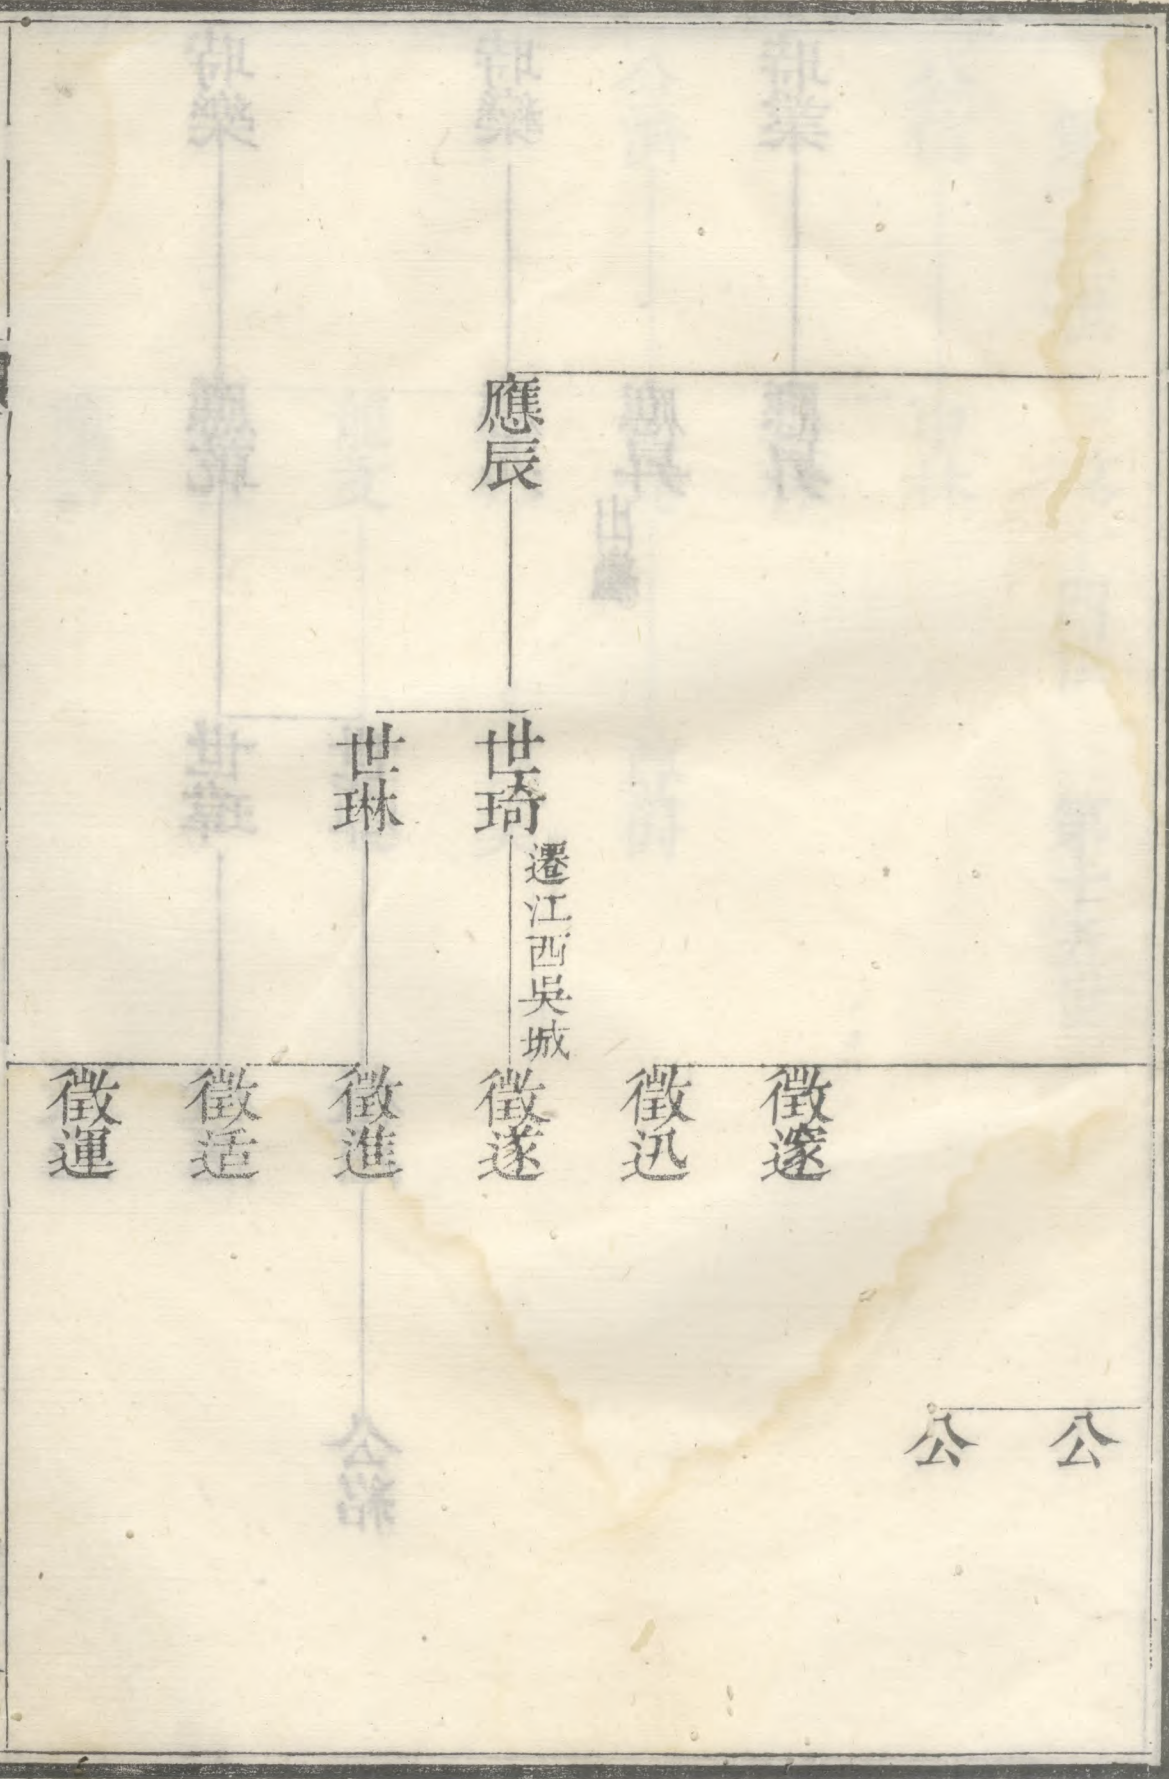 應辰
世琦
遷江西吳城
世琳
徵邃
徵迅
徵遂
徵進
徵适
徵運
公
公